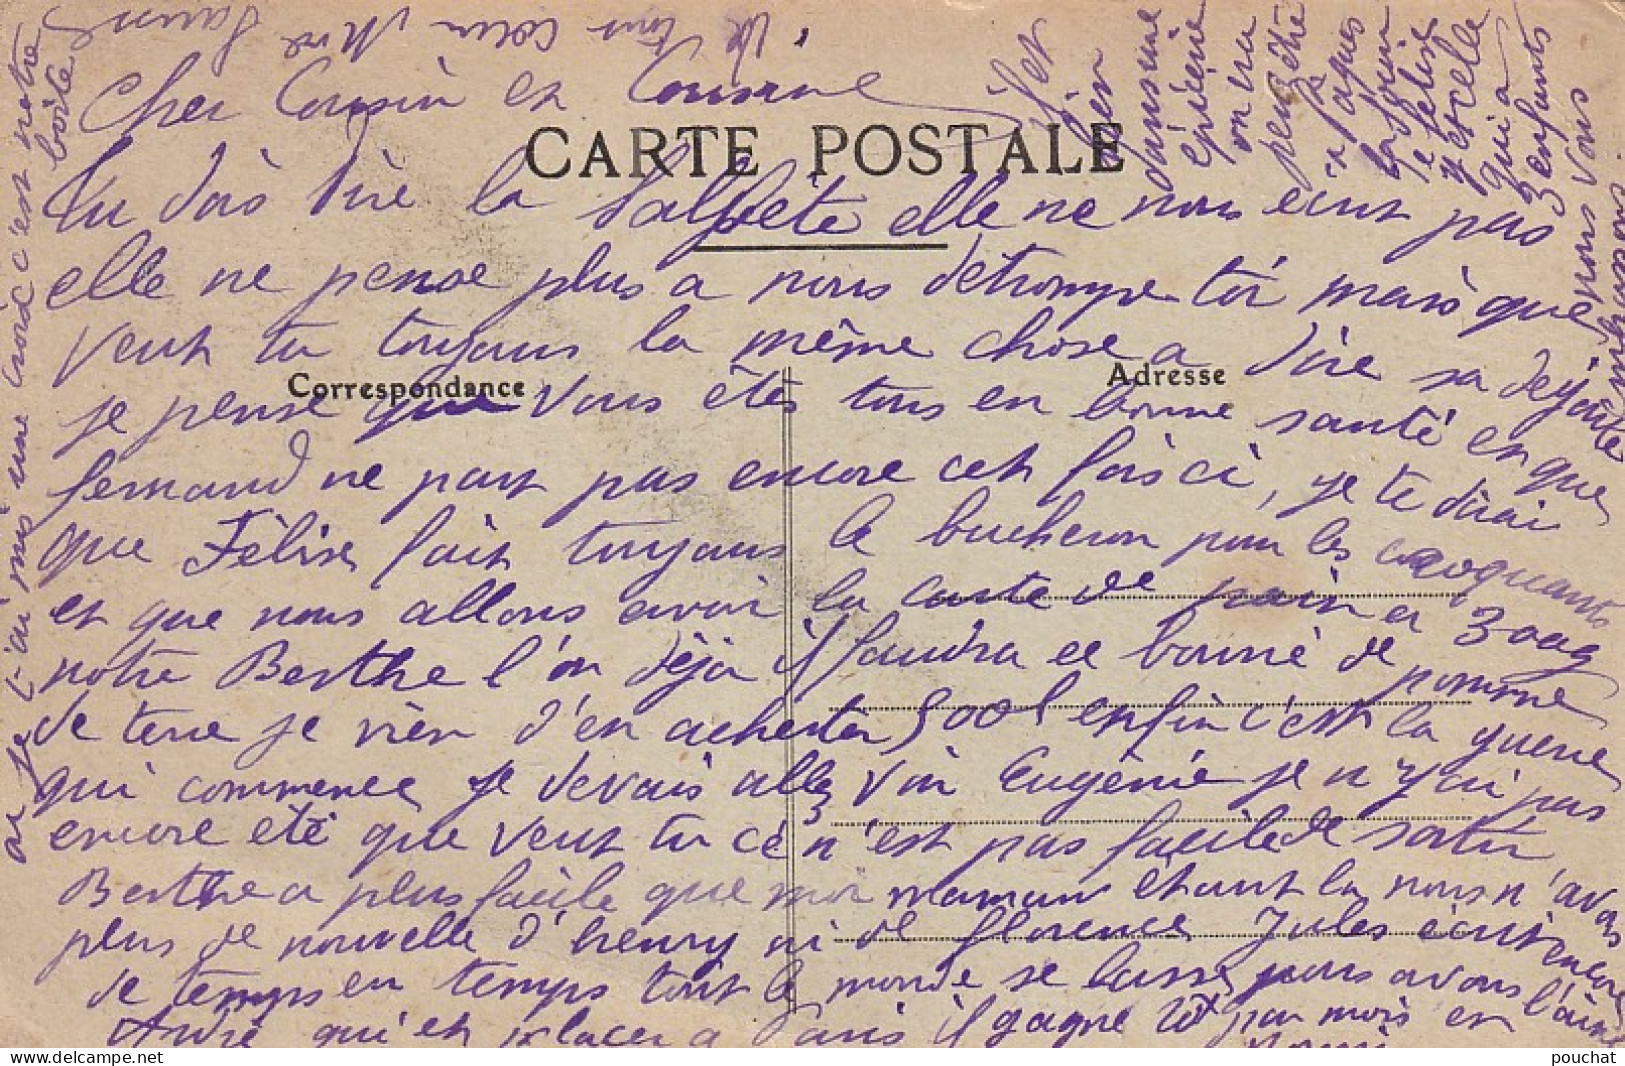 Cher Cousin et Cousine
CARTE POSTALE
Tu dois dire la Salpéte elle ne nous écrit pas
elle ne pense plus a nous détrompe toi mais que
veut tu toujours la même chose a dire sa dejoute
Correspondance
Adresse
je pense que vous êtes tous en bonne santé et que
fernand ne part pas encore cet fois ci, je te dirai
que Félise fait toujours le bucheron pour les
et que nous allons avoir la carte de pain a 300g
notre Berthe l'on déja il faudra ce bourré de pomme
de terre je vien d'en acheter 500l enfin c'est la guerre
qui commence je devais allez voir Eugènie je n'y ai pas
encore eté que veut tu cè n'est pas facile de sortir
Berthe a plus facile que moi maman etant la nous n'avons
plus de nouvelle d'henry ni de florence Jules écrit encore
de temps en temps tout le monde se lasse nous avons l'ainé
André qui et placer a Paris il gagne par mois et
nourri
et
bien
dans une
épicerie
on va
peutêtre
a
paques
la
je félise
y et celle
qui a
3 enfants
nous vous
embrassons
de tous cœur
ou je t'ai mis une croix c'est notre
boîte
pouchat